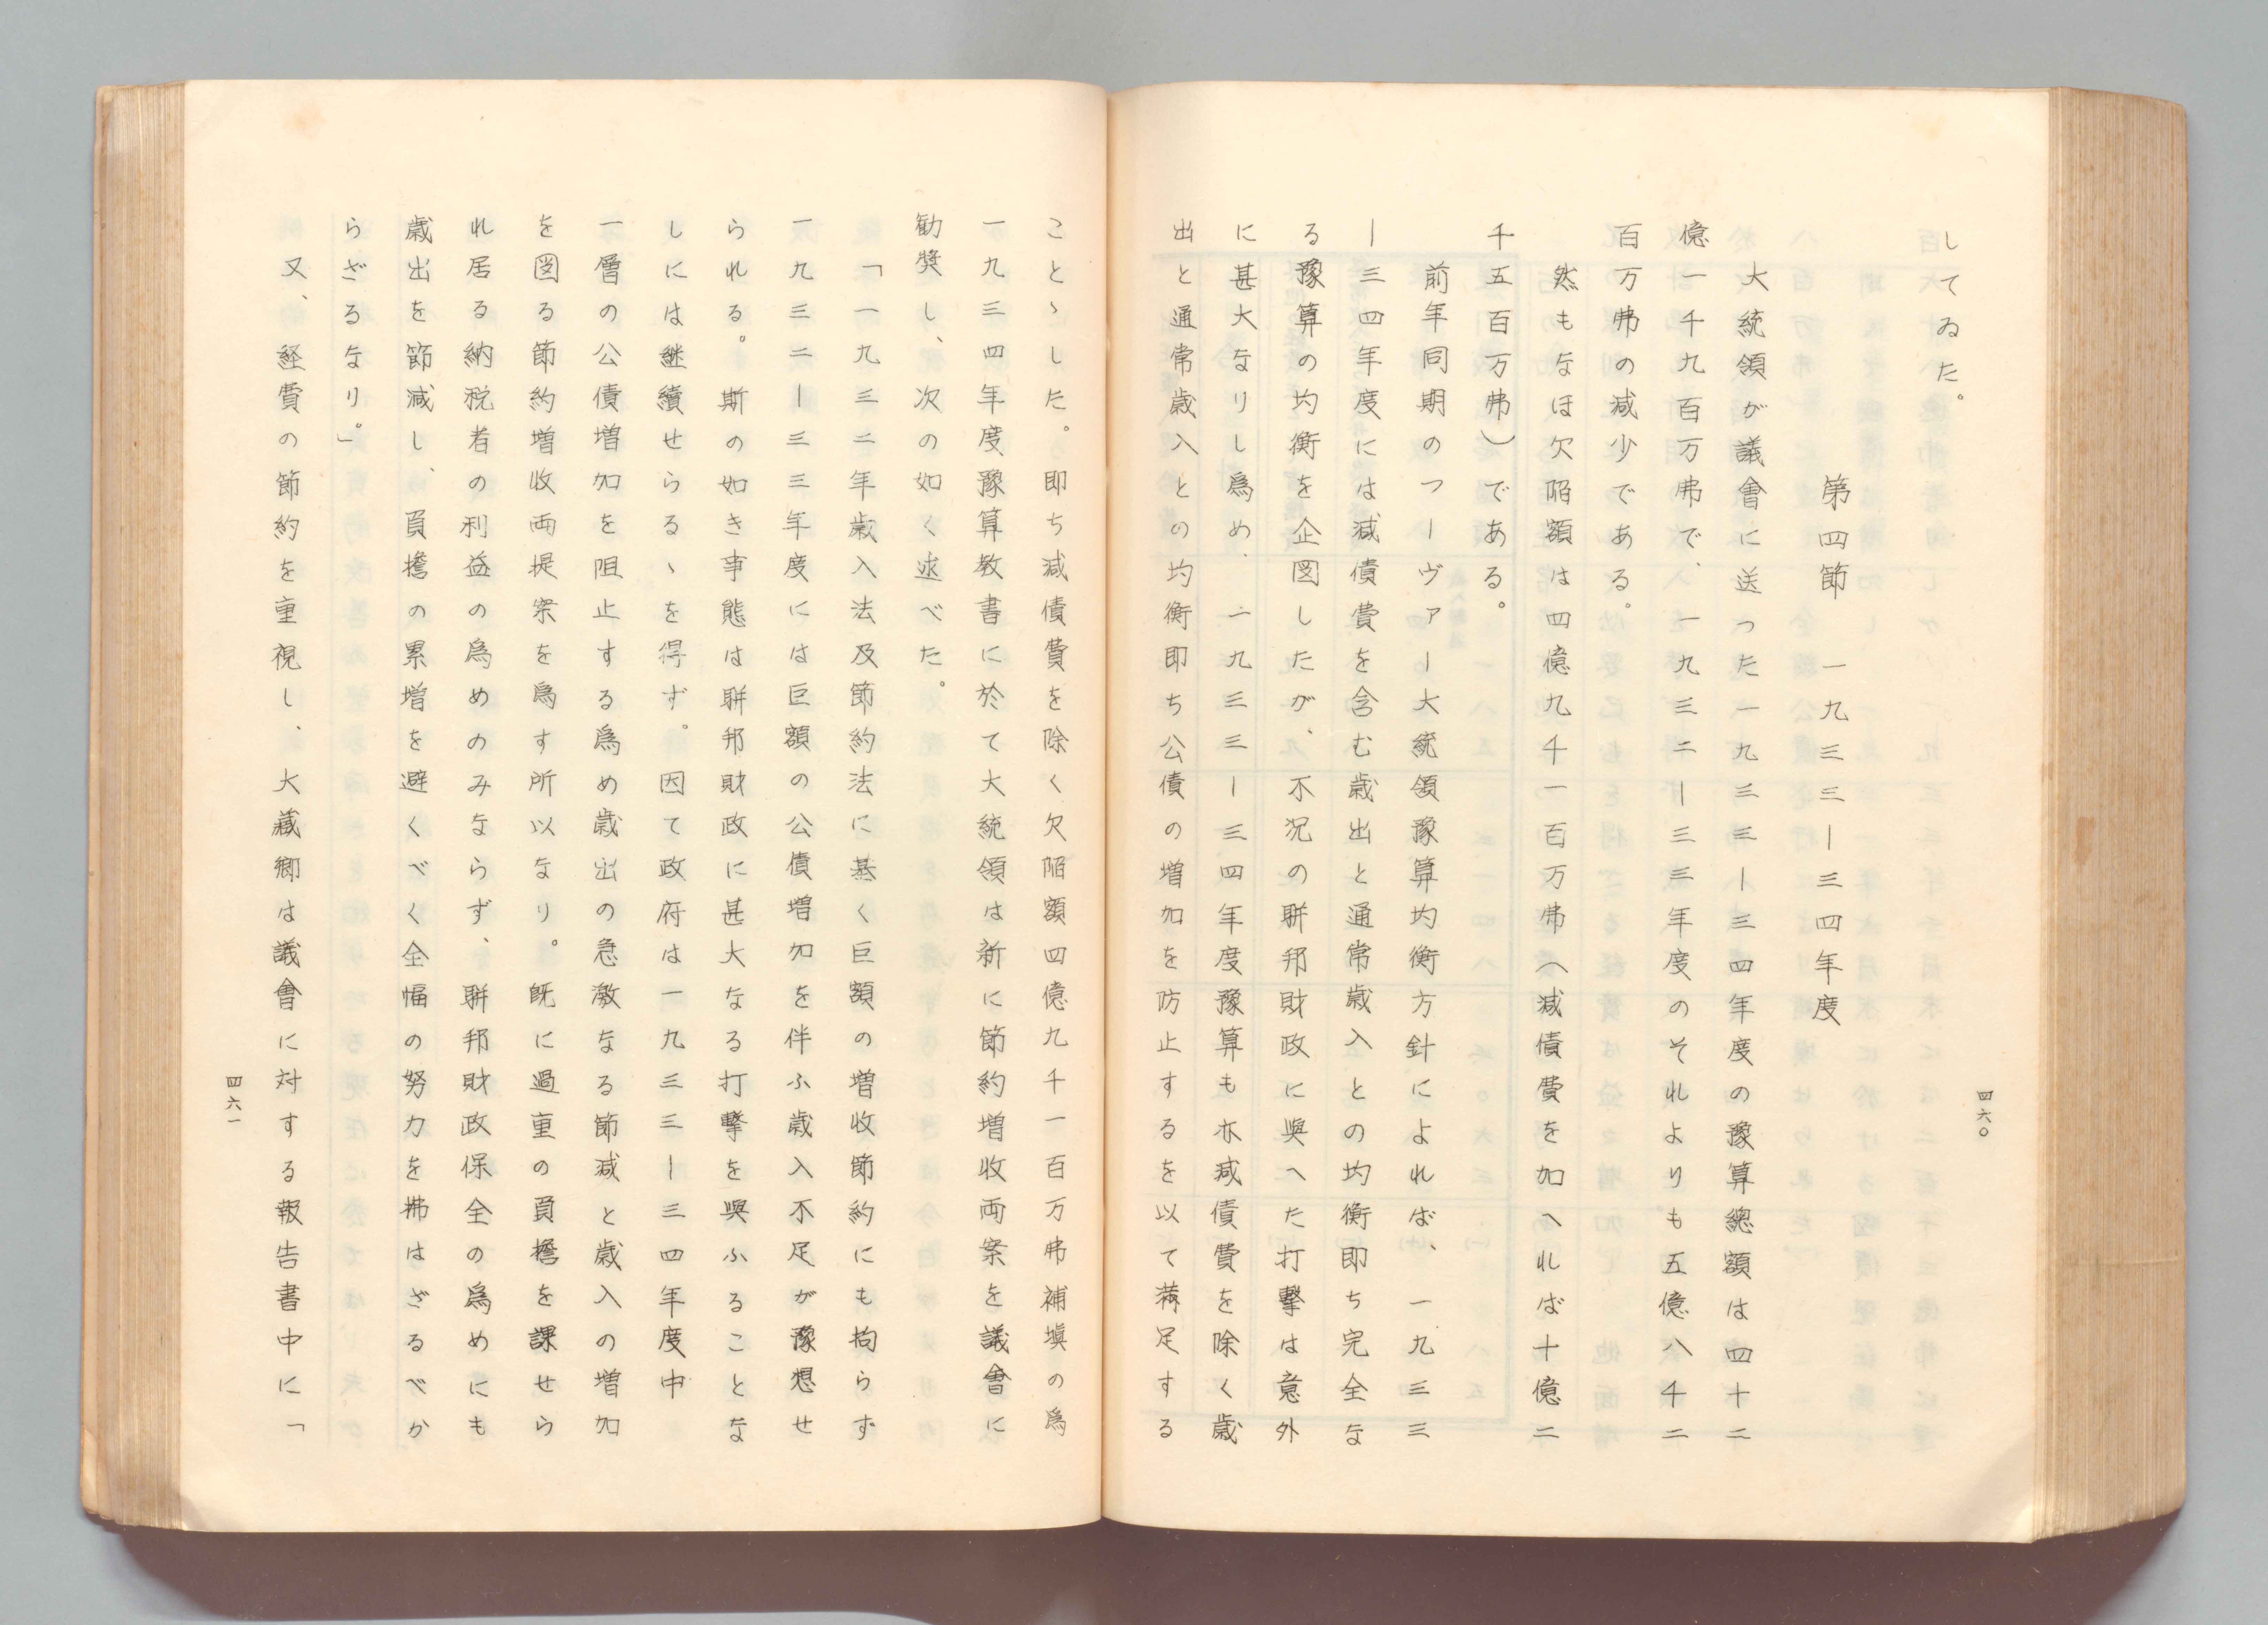 してゐた。
第四節　一九三三ー三四年度
大統領が議會に送つた一九三三ー三四年度の豫算總額は四十二
億一千九百万弗で、一九三二ー三三年度のそれよりも五億八千二
百万弗の減少である。
然もなほ欠陥額は四億九千一百万弗（減債費を加へれば十億二
千五百万弗）である。
前年同期のフーヴァー大統領豫算均衡方針によれば、一九三三
ー三四年度には減債費を含む歳出と通常歳入との均衡即ち完全な
る豫算の均衡を企図したが、不況の聯邦財政に與へた打擊は意外
に甚大なりし為め、一九三三ー三四年度豫算も亦減債費を除く歳
出と通常歳入との均衡即ち公債の増加を防止するを以て満足する
四六〇
ことゝした。即ち減債費を除く欠陥額四億九千一百万弗補塡の為
一九三四年度豫算教書に於て大統領は新に節約増收両案を議會に
勧奬し、次の如く述べた。
「一九三二年歳入法及節約法に基く巨額の増收節約にも拘らず
一九三二ー三三年度には巨額の公債増加を伴ふ歳入不足が豫想せ
られる。斯の如き事態は聯邦財政に甚大なる打擊を與ふることな
しには継續せらるゝを得ず。因て政府は一九三三ー三四年度中
一層の公債増加を阻止する為め歳出の急激なる節減と歳入の増加
を図る節約増收両提案を為す所以なり。既に過重の負擔を課せら
れ居る納税者の利益の為めのみならず、聯邦財政保全の為めにも
歳出を節減し、負擔の累増を避くべく全幅の努力を拂はざるべか
らざるなり。」
又、経費の節約を重視し、大藏卿は議會に対する報告書中に「
四六一